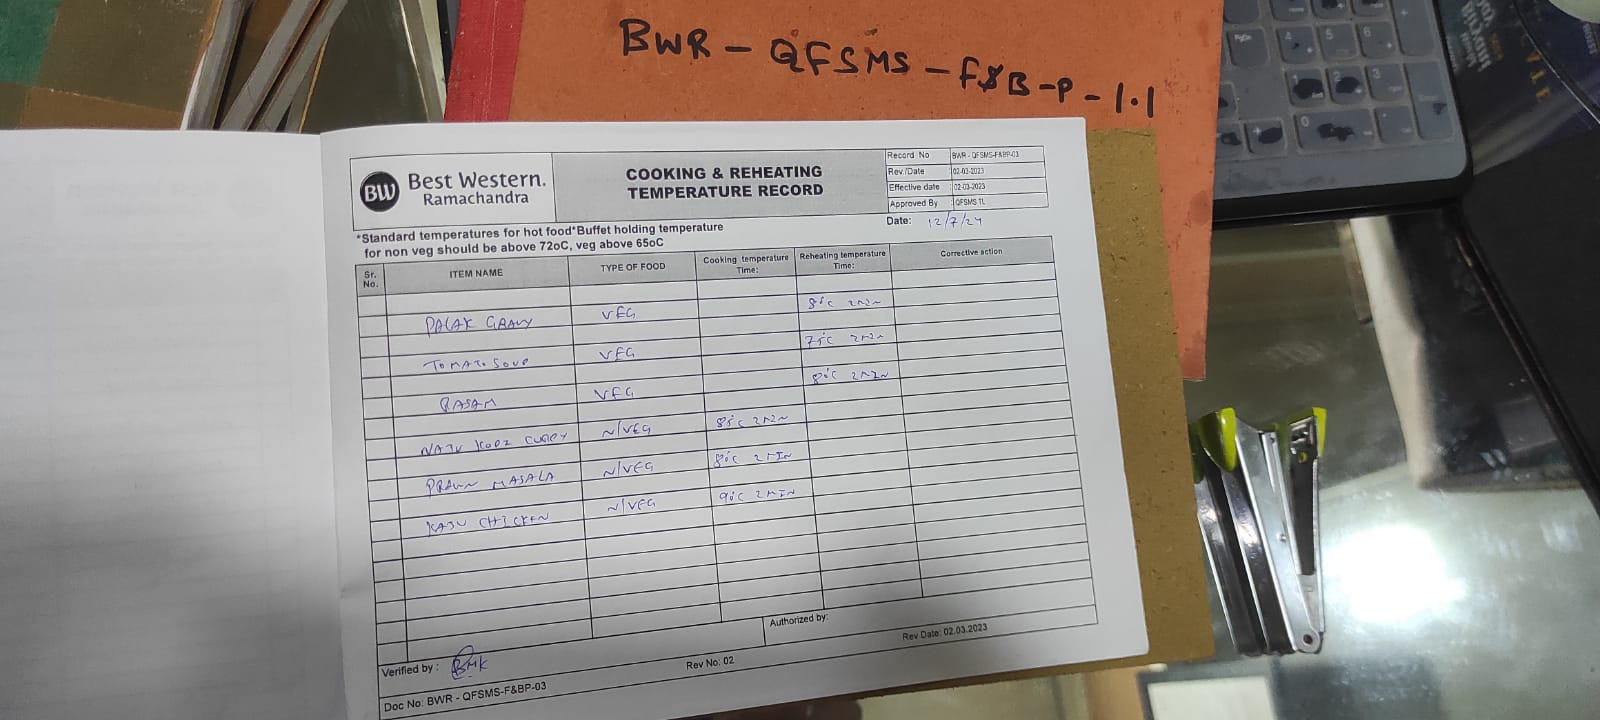 BWR - QFSMS - F&B - P - 1.1
BW Best Western.
Ramachandra
COOKING & REHEATING
TEMPERATURE RECORD
Record No BWR - QFSMS-F&BP-03
Rev./Date 02-03-2023
Effective date : 02-03-2023
Approved By : QFSMS TL
Date: 12/7/24
*Standard temperatures for hot food*Buffet holding temperature
for non veg should be above 72oC, veg above 65oC
Sr. No. ITEM NAME TYPE OF FOOD Cooking temperature Time: Reheating temperature Time: Corrective action
PALAK GRAVY VEG 2MIN
TOMATO SOUP VEG 75°C 2MIN
RASAM VEG 80°C 2MIN
NATU KODI CURRY N/VEG 85°C 2MIN
PRAWN MASALA N/VEG 80°C 2MIN
KAJU CHICKEN N/VEG 90°C 2MIN
Verified by : BMK
Authorized by:
Doc No: BWR - QFSMS-F&BP-03
Rev No: 02
Rev Date: 02.03.2023